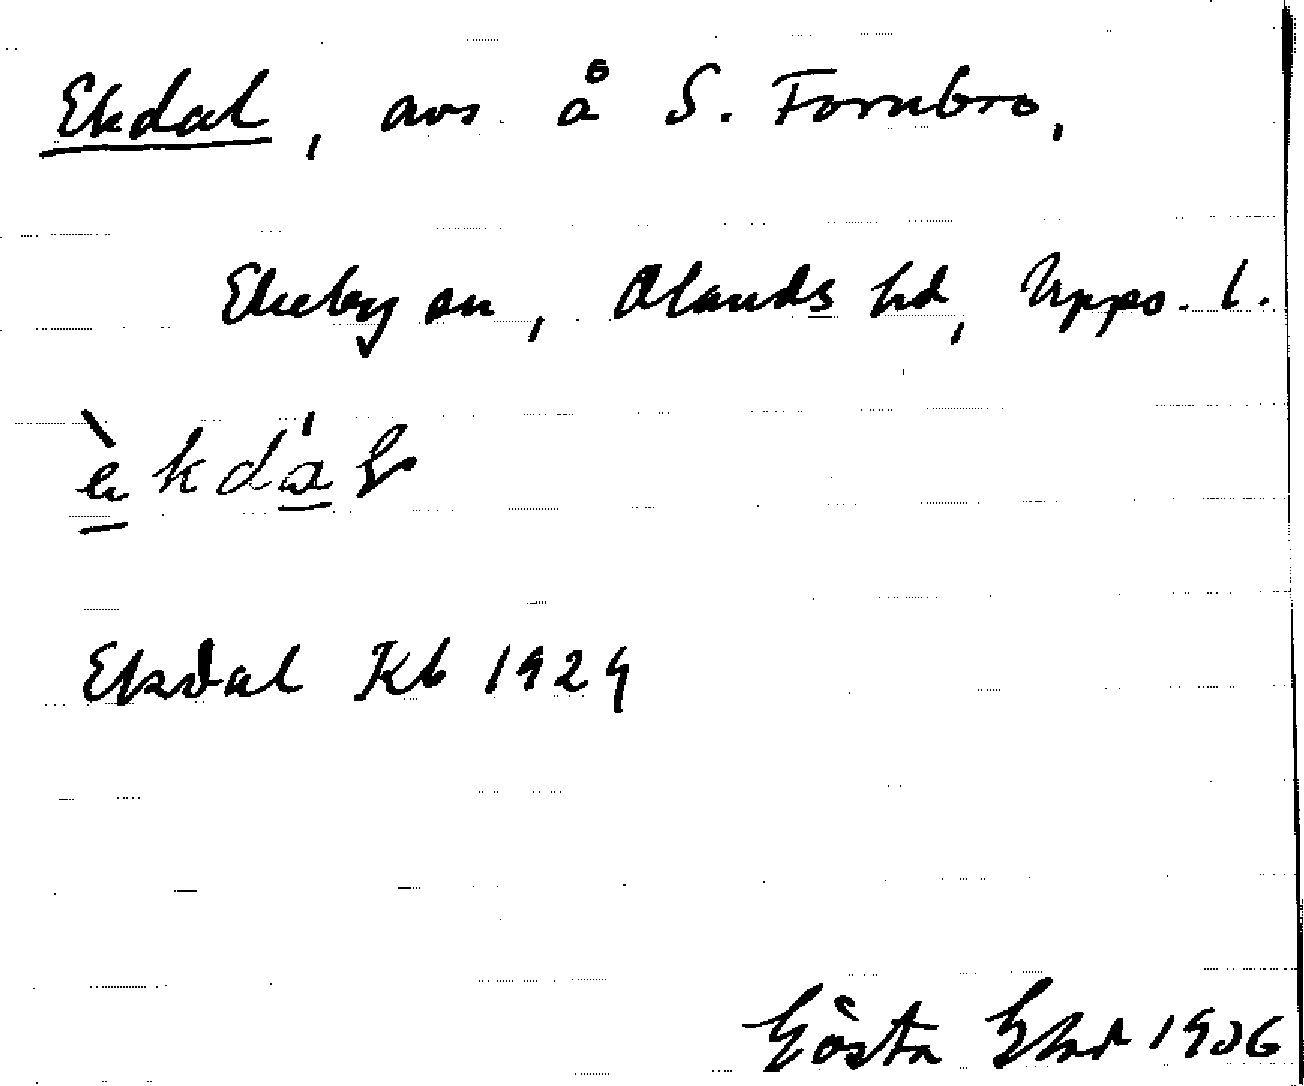 Ekdal, avs. å S. Fornbro,
Ekeby sn, Olands hd, Upps. l.
Ekdal Kb 1929
Gösta 1936